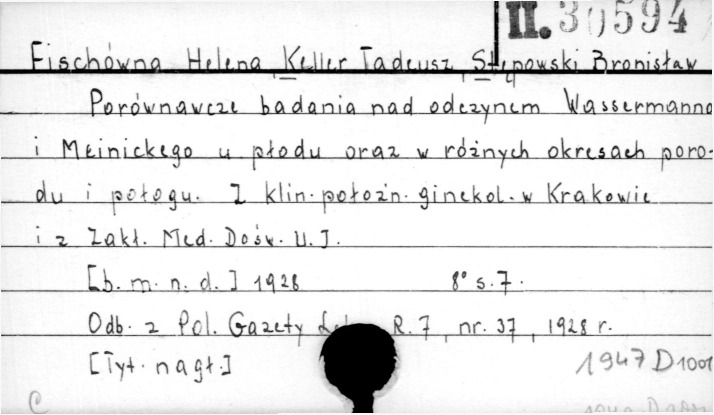 II. 30594
Fischówna Helena, Keller Tadeusz, Stępowski Bronisław
Porównawcze badania nad odczynem Wassermanna
i Meinickego u płodu oraz w różnych okresach poro-
du i połogu. Z klin. położn. ginekol. w Krakowie
i z Zakł. Med. Dośw. U. J.
[b. m. n. d.] 1928 8° s. 7.
Odb. z Pol. Gazety R. 7, nr. 37, 1928 r.
[Tyt. nagł.]
1947 D 1001
C